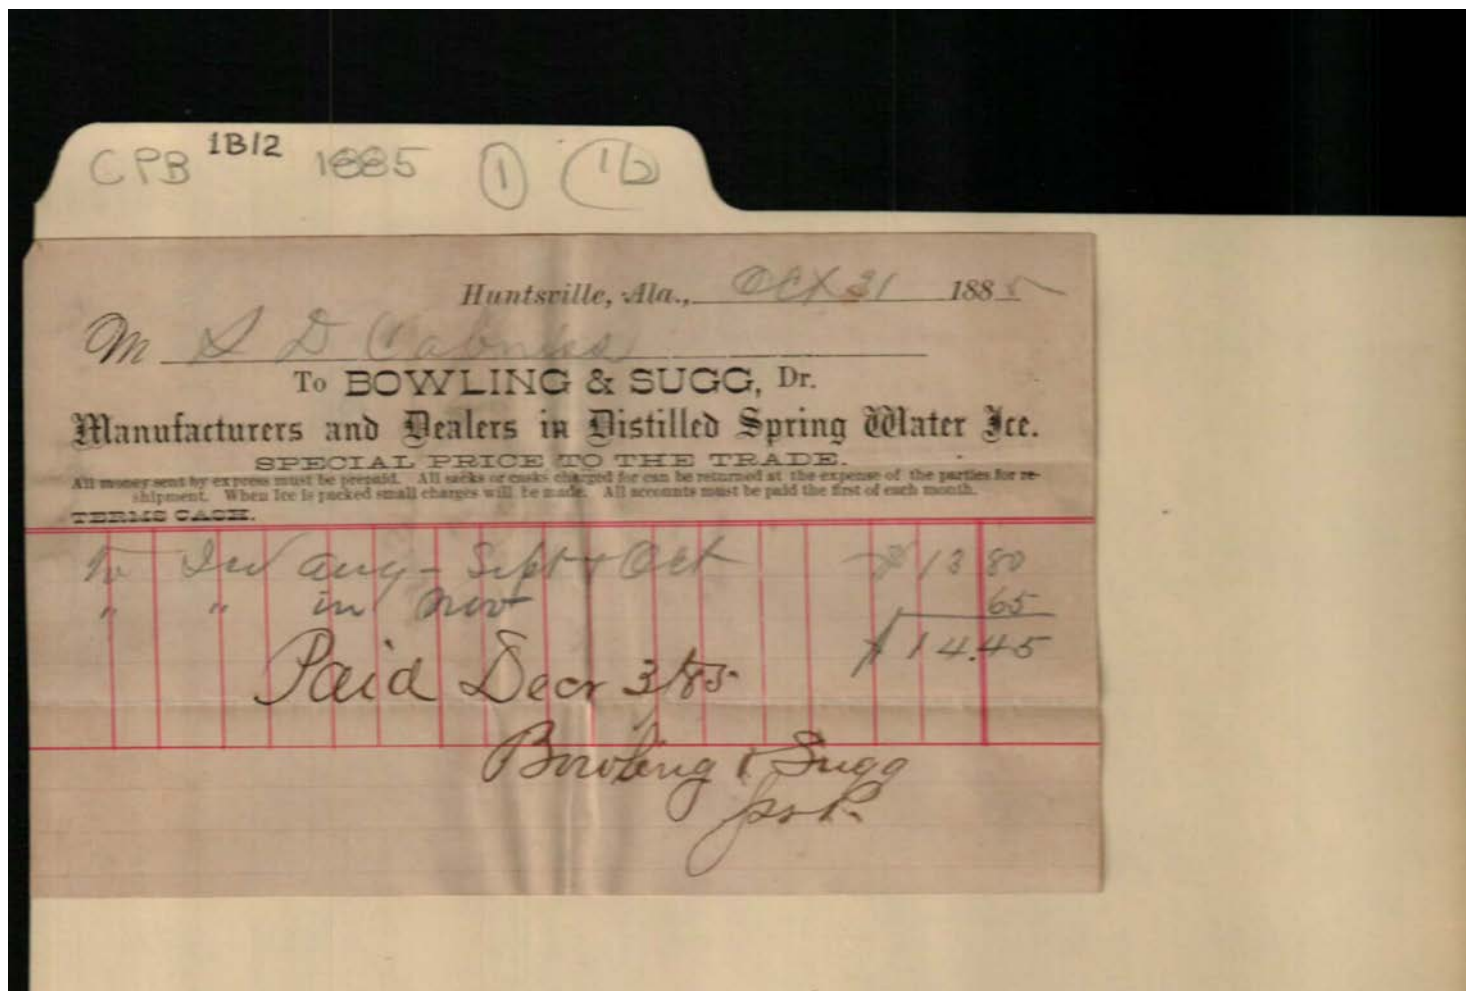 CPB 1B12 1885 1 1b
Huntsville, Ala., Oct 31 1885
M S D Cabniss
To BOWLING & SUGG, Dr.
Manufacturers and Dealers in Distilled Spring Water Ice.
SPECIAL PRICE TO THE TRADE.
All money sent by express must be prepaid. All sacks or casks charged for can be returned at the expense of the parties for re-
shipment. When Ice is packed small charges will be made. All accounts must be paid the first of each month.
TERMS CASH.
To Aug - Sept & Oct $ 13 80
" " in Nov 65
$ 14.45
Paid Decr 3/85
Bowling & Sugg